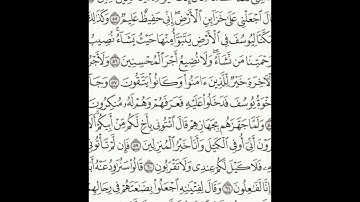 قَالَ ٱجْعَلْنِي عَلَىٰ خَزَآئِنِ ٱلْأَرْضِ إِنِّي حَفِيظٌ عَلِيمٌ ٥٥ وَكَذَٰلِكَ
مَكَّنَّا لِيُوسُفَ فِي ٱلْأَرْضِ يَتَبَوَّأُ مِنْهَا حَيْثُ يَشَآءُ نُصِيبُ
بِرَحْمَتِنَا مَن نَّشَآءُ وَلَا نُضِيعُ أَجْرَ ٱلْمُحْسِنِينَ ٥٦ وَلَأَجْرُ
ٱلْأٓخِرَةِ خَيْرٌ لِّلَّذِينَ ءَامَنُوا۟ وَكَانُوا۟ يَتَّقُونَ ٥٧ وَجَآءَ
إِخْوَةُ يُوسُفَ فَدَخَلُوا۟ عَلَيْهِ فَعَرَفَهُمْ وَهُمْ لَهُۥ مُنكِرُونَ
٥٨ وَلَمَّا جَهَّزَهُم بِجَهَازِهِمْ قَالَ ٱئْتُونِي بِأَخٍ لَّكُم مِّنْ أَبِيكُمْ أَلَا
تَرَوْنَ أَنِّيٓ أُوفِي ٱلْكَيْلَ وَأَنَا۠ خَيْرُ ٱلْمُنزِلِينَ ٥٩ فَإِن لَّمْ تَأْتُونِي
بِهِۦ فَلَا كَيْلَ لَكُمْ عِندِي وَلَا تَقْرَبُونِ ٦٠ قَالُوا۟ سَنُرَٰوِدُ عَنْهُ أَبَاهُ
وَإِنَّا لَفَٰعِلُونَ ٦١ وَقَالَ لِفِتْيَٰنِهِ ٱجْعَلُوا۟ بِضَٰعَتَهُمْ فِي رِحَالِهِمْ